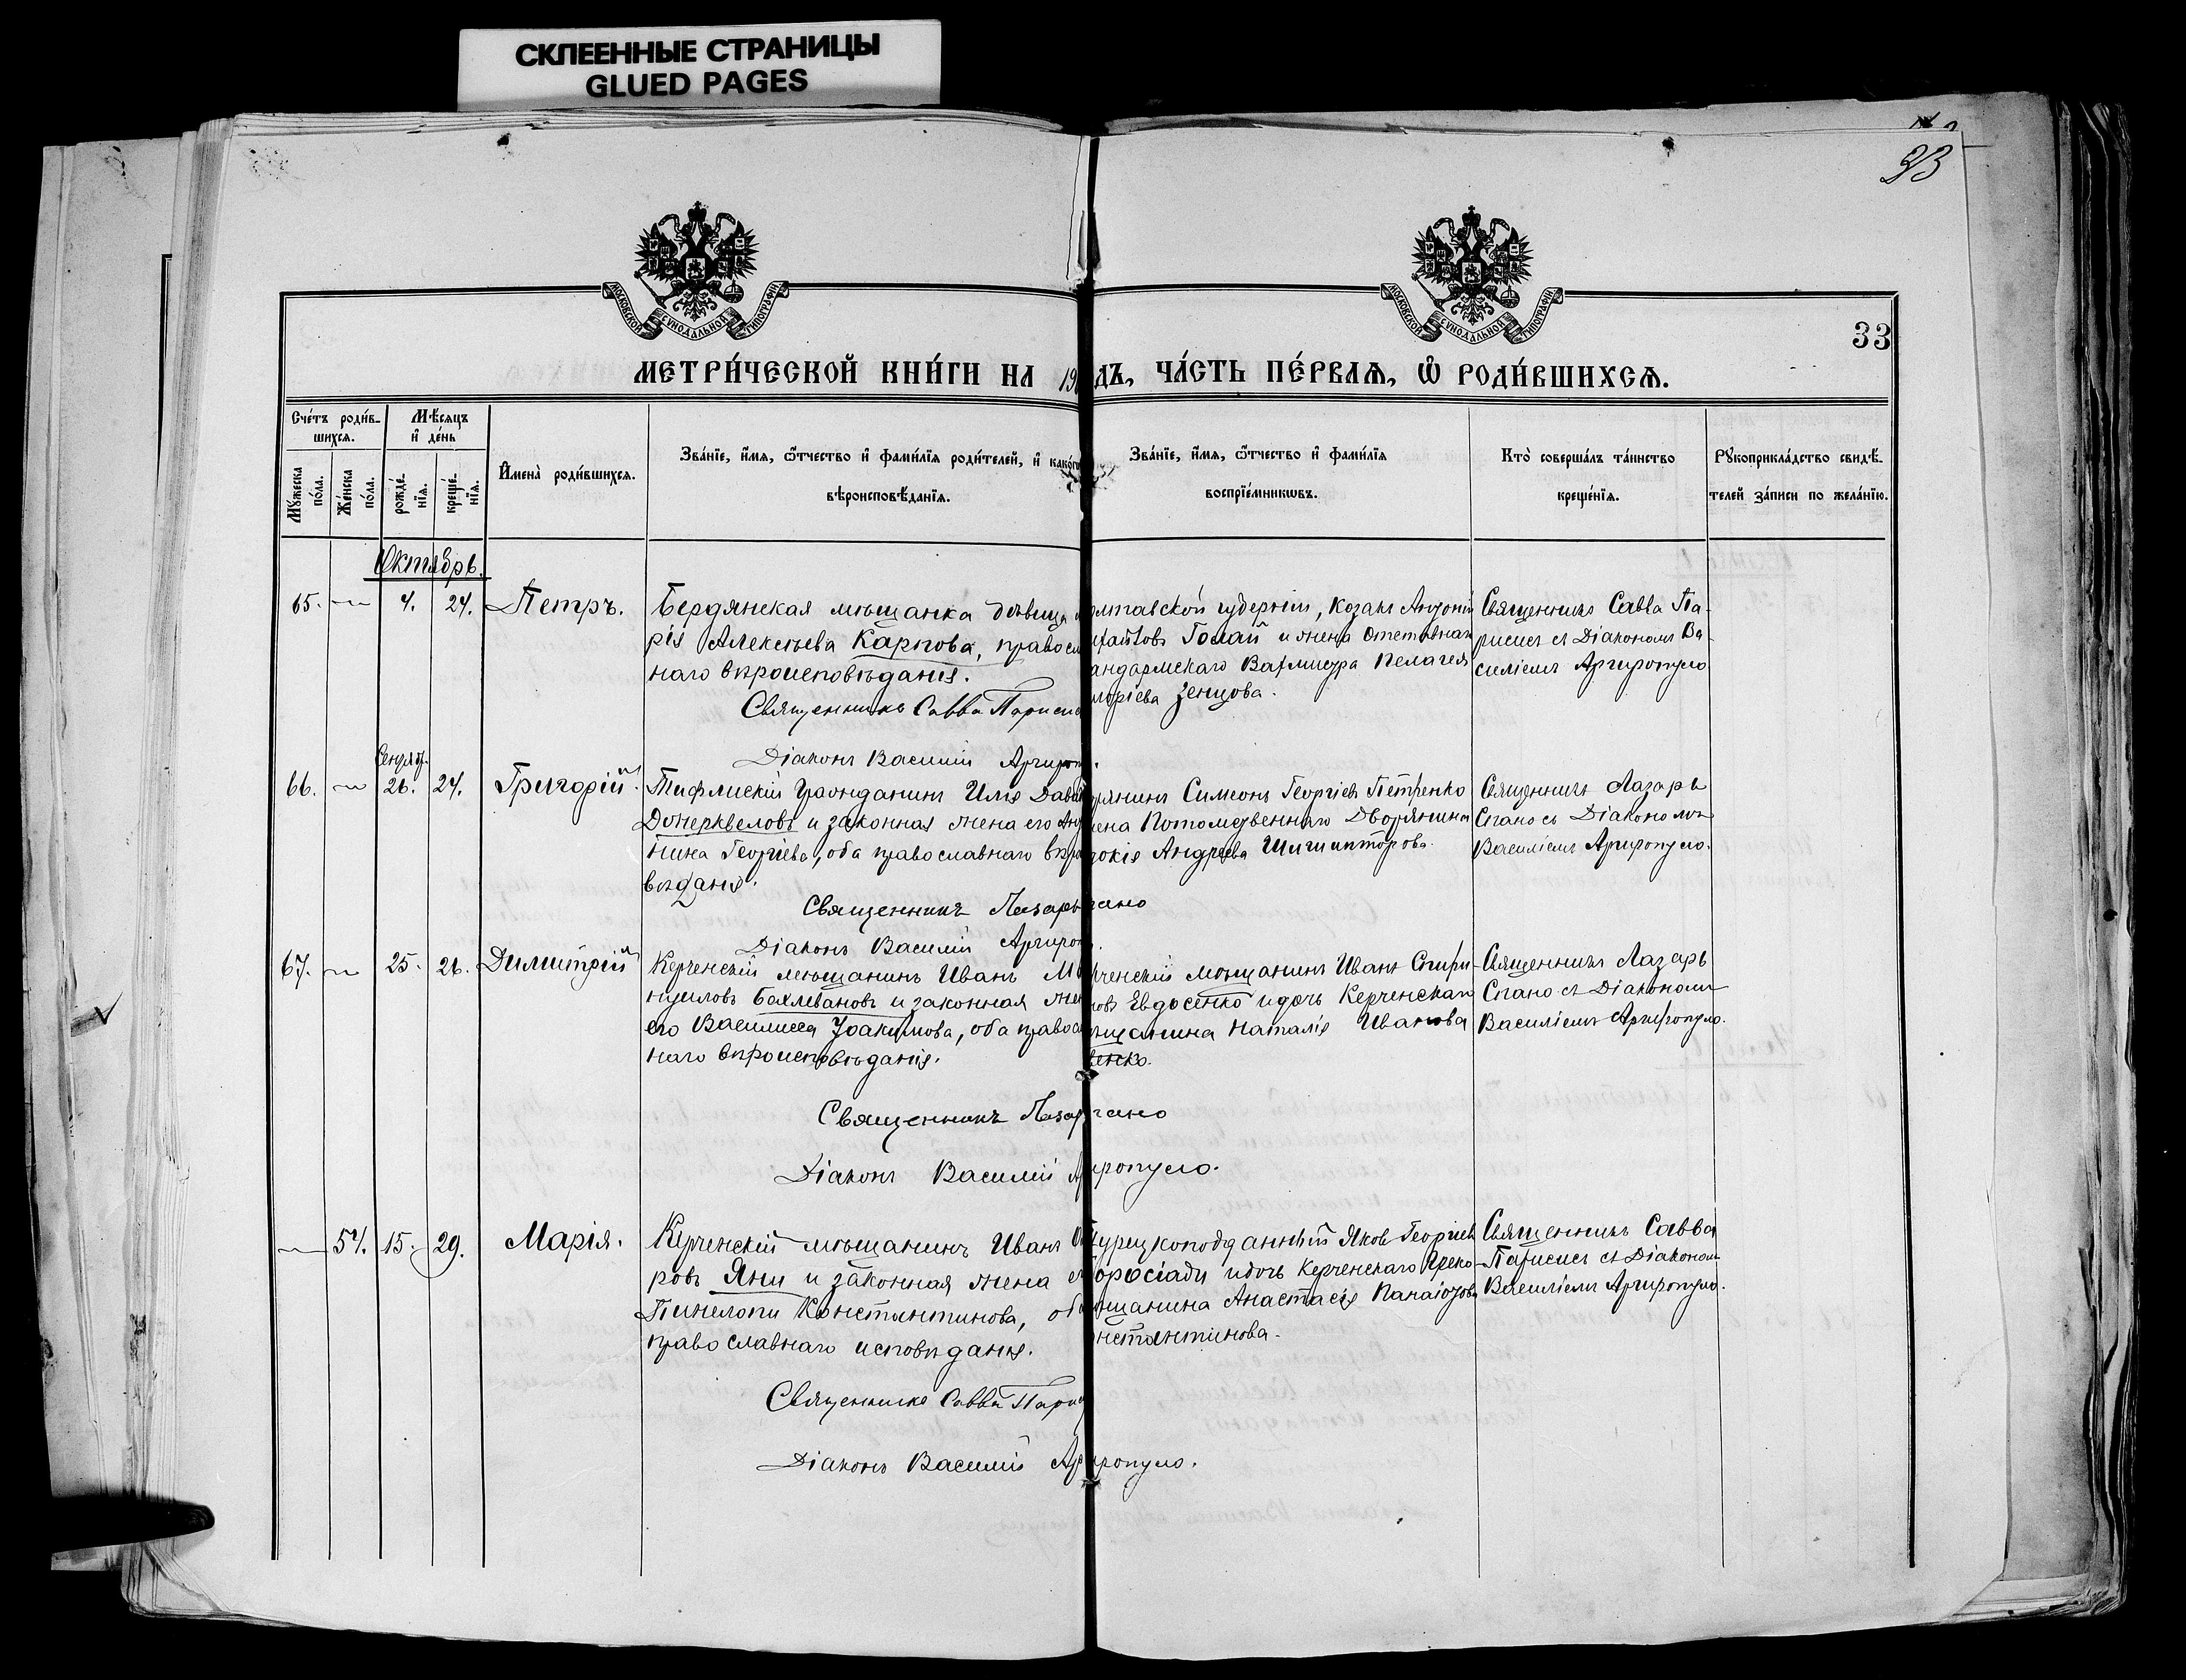 СКЛЕЕННЫЕ СТРАНИЦЫ
GLUED PAGES
33
МОСКОВСКОЙ СѴНОДАЛЬНОЙ ТИПОГРАФІИ
МОСКОВСКОЙ СѴНОДАЛЬНОЙ ТИПОГРАФІИ
33
МЕТРИ́ЧЕСКОЙ КНИ́ГИ НА 19
ДЪ, ЧА́СТЬ ПЕ́РВАѦ, Ѡ РОДИ́ВШИХСѦ.
Сче́тъ роди́в-
шихся.
Мѣсяцъ
и де́нь
Мꙋжеска по́ла.
Же́нска по́ла.
рожде́-
нїя.
креще́-
нїя.
Имена̀ роди́вшихся.
Зва́нїе, и́мя, ѻ́тчество и фами́лїя роди́телей, и како́гѡ
вѣроисповѣ́данїя.
Зва́нїе, и́мя, ѻ́тчество и фами́лїя
воспрїе́мникѡвъ.
Кто̀ соверша́лъ та́инство
креще́нїя.
Рꙋкоприкла́дство свидѣ́-
телей за́писи по жела́нїю.
Октябрь.
65. — 4. 24. Петръ.
Бердянская мѣщанка дѣвица М
рія Алексѣева Карпова, правосл
наго вѣроисповѣданія.
Священникъ Савва Парисис
Діаконъ Василій Аргироп
лтавской губерніи, козакъ Андроній
Голай и жена отставнаго
андармскаго Вахмистра Пелагея
горіева Зенцова.
Священникъ Савва Па-
рисисъ съ Діакономъ Ва-
силіемъ Аргиропуло
66. — Сентяб. 26. 24. Григорій м.
Тифлискій гражданинъ Илія Давид
Донеркveловъ и законная жена его Ан
нина Георгіева, оба православнаго вѣро
вѣданія.
Священникъ Лазарь
пано
Діаконъ Василій Аргироп
рянинъ Симеонъ Георгіевъ Петренко
жена Потомственнаго Дворянина
докія Андреева Шишкторова.
Священникъ Лазарь
Спано съ Діакономъ
Василіемъ Аргиропуло.
67. — 25. 26. Димитрій м
Керченскій мѣщанинъ Иванъ Ма
нуиловъ Бахлевановъ и законная жен
его Василисса Іоакимова, оба правосл
наго вѣроисповѣданія.
Священникъ Лазар
пано
Діаконъ Василій А
гиропуло.
рченскій мѣщанинъ Иванъ Спири-
новъ Евдосенко и дочь Керченскаго
ѣщанина Наталія Иванова
венко.
Священникъ Лазарь
Спано съ Діакономъ
Василіемъ Аргиропуло.
— 54. 15. 29. Марія.
Керченскій мѣщанинъ Иванъ
ровъ Яни и законная жена е
Пинелопи Константинова, оба
православнаго исповѣданія.
Священникъ Савва Парис
Діаконъ Василій Ар
гиропуло.
Турецкоподданный Яковъ Георгіевъ
Ѳоросіади и дочь Керченскаго Греко-
мѣщанина Анастасія Панаіотова
нстантинова.
Священникъ Савва
Парисисъ съ Діакономъ
Василіемъ Аргиропуло.